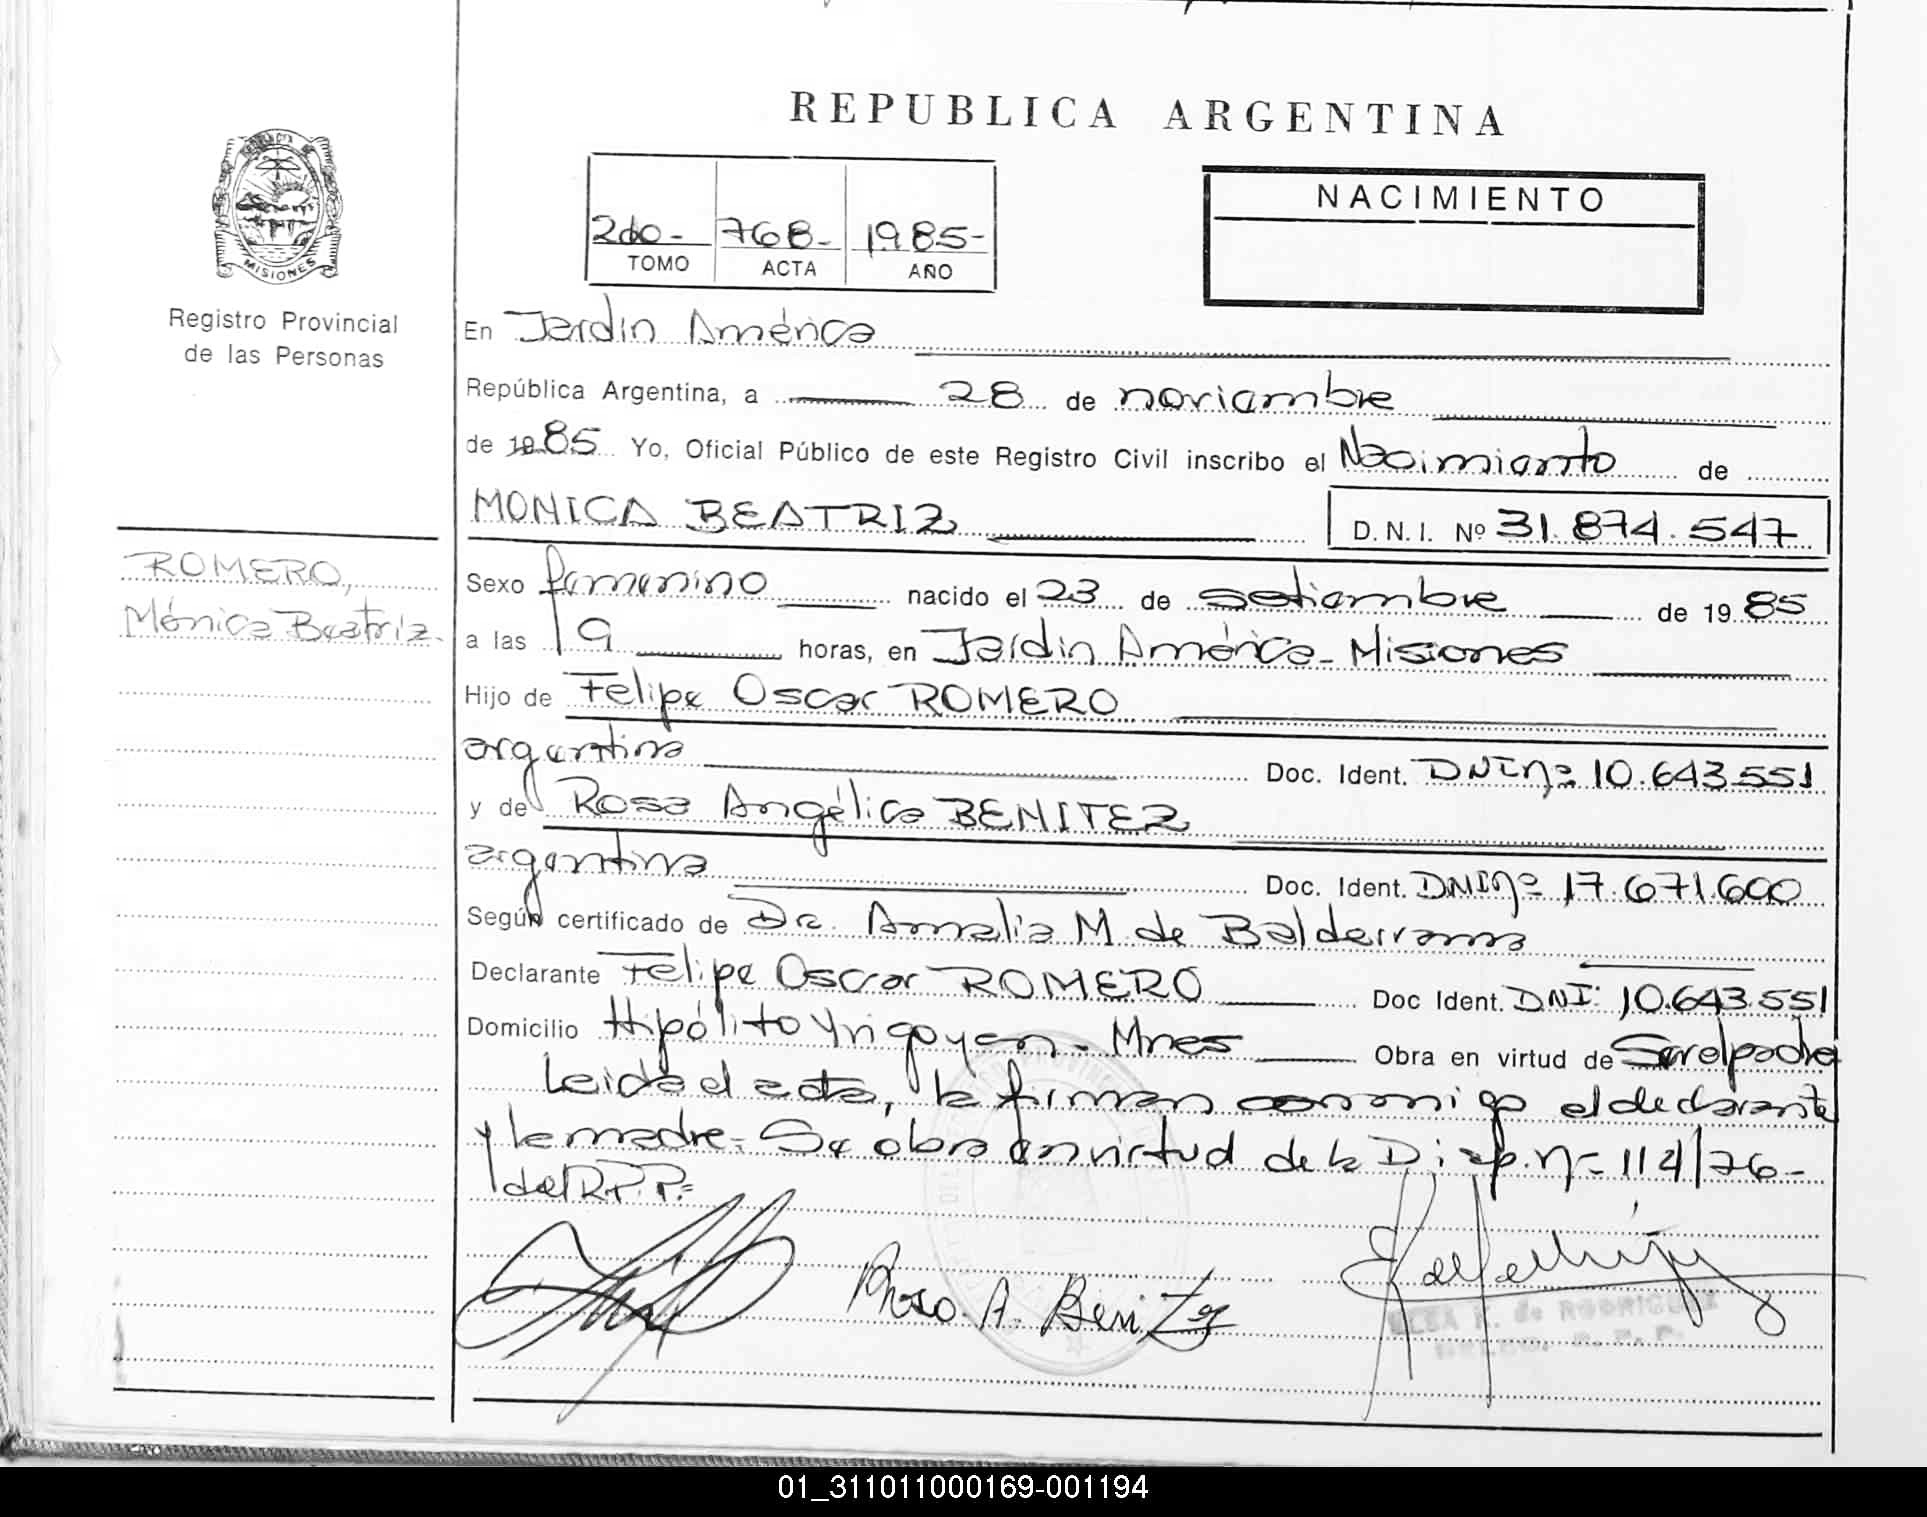 REPUBLICA ARGENTINA
NACIMIENTO
2do- 768- 1985-
TOMO ACTA AÑO
MISIONES
Registro Provincial
de las Personas
En Jardín América
República Argentina, a 28 de noviembre
de 1985 Yo, Oficial Público de este Registro Civil inscribo el Nacimiento de
MONICA BEATRIZ
D.N.I. Nº 31.874.547
ROMERO,
Mónica Beatriz.
Sexo femenino nacido el 23 de setiembre de 1985
a las 19 horas, en Jardín América - Misiones
Hijo de Felipe Oscar ROMERO
argentina Doc. Ident. DNI nº 10.643.551
y de Rosa Angélica BENITEZ
argentina Doc. Ident. DNI nº 17.671.600
Según certificado de Dra. Amalia M. de Balderrama
Declarante Felipe Oscar ROMERO Doc Ident. DNI: 10.643.551
Domicilio Hipólito Yrigoyen - Mnes Obra en virtud de Ser el padre
Leida el acta, la firman conmigo el declarante
y la madre.- Se obra en virtud de la Disp. nº 114/76-
del R.P.P.=
Rosa. A. Benitez
ELSA F. de RODRIGUEZ
R. P. P.
01_311011000169-001194